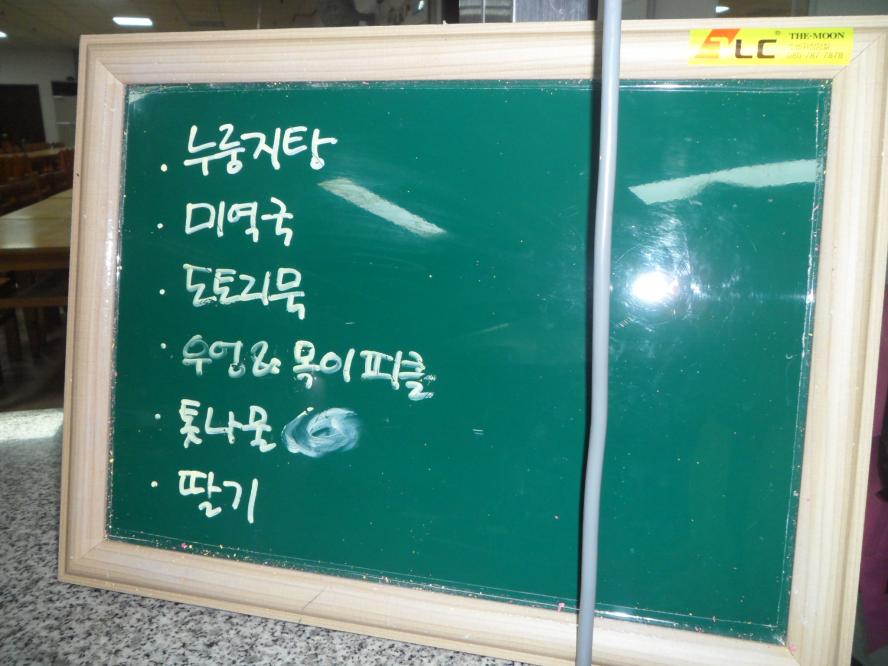 SLC THE-MOON
080-787-7878
· 누룽지탕
· 미역국
· 도토리묵
· 우엉&목이피클
· 톳나물
· 딸기